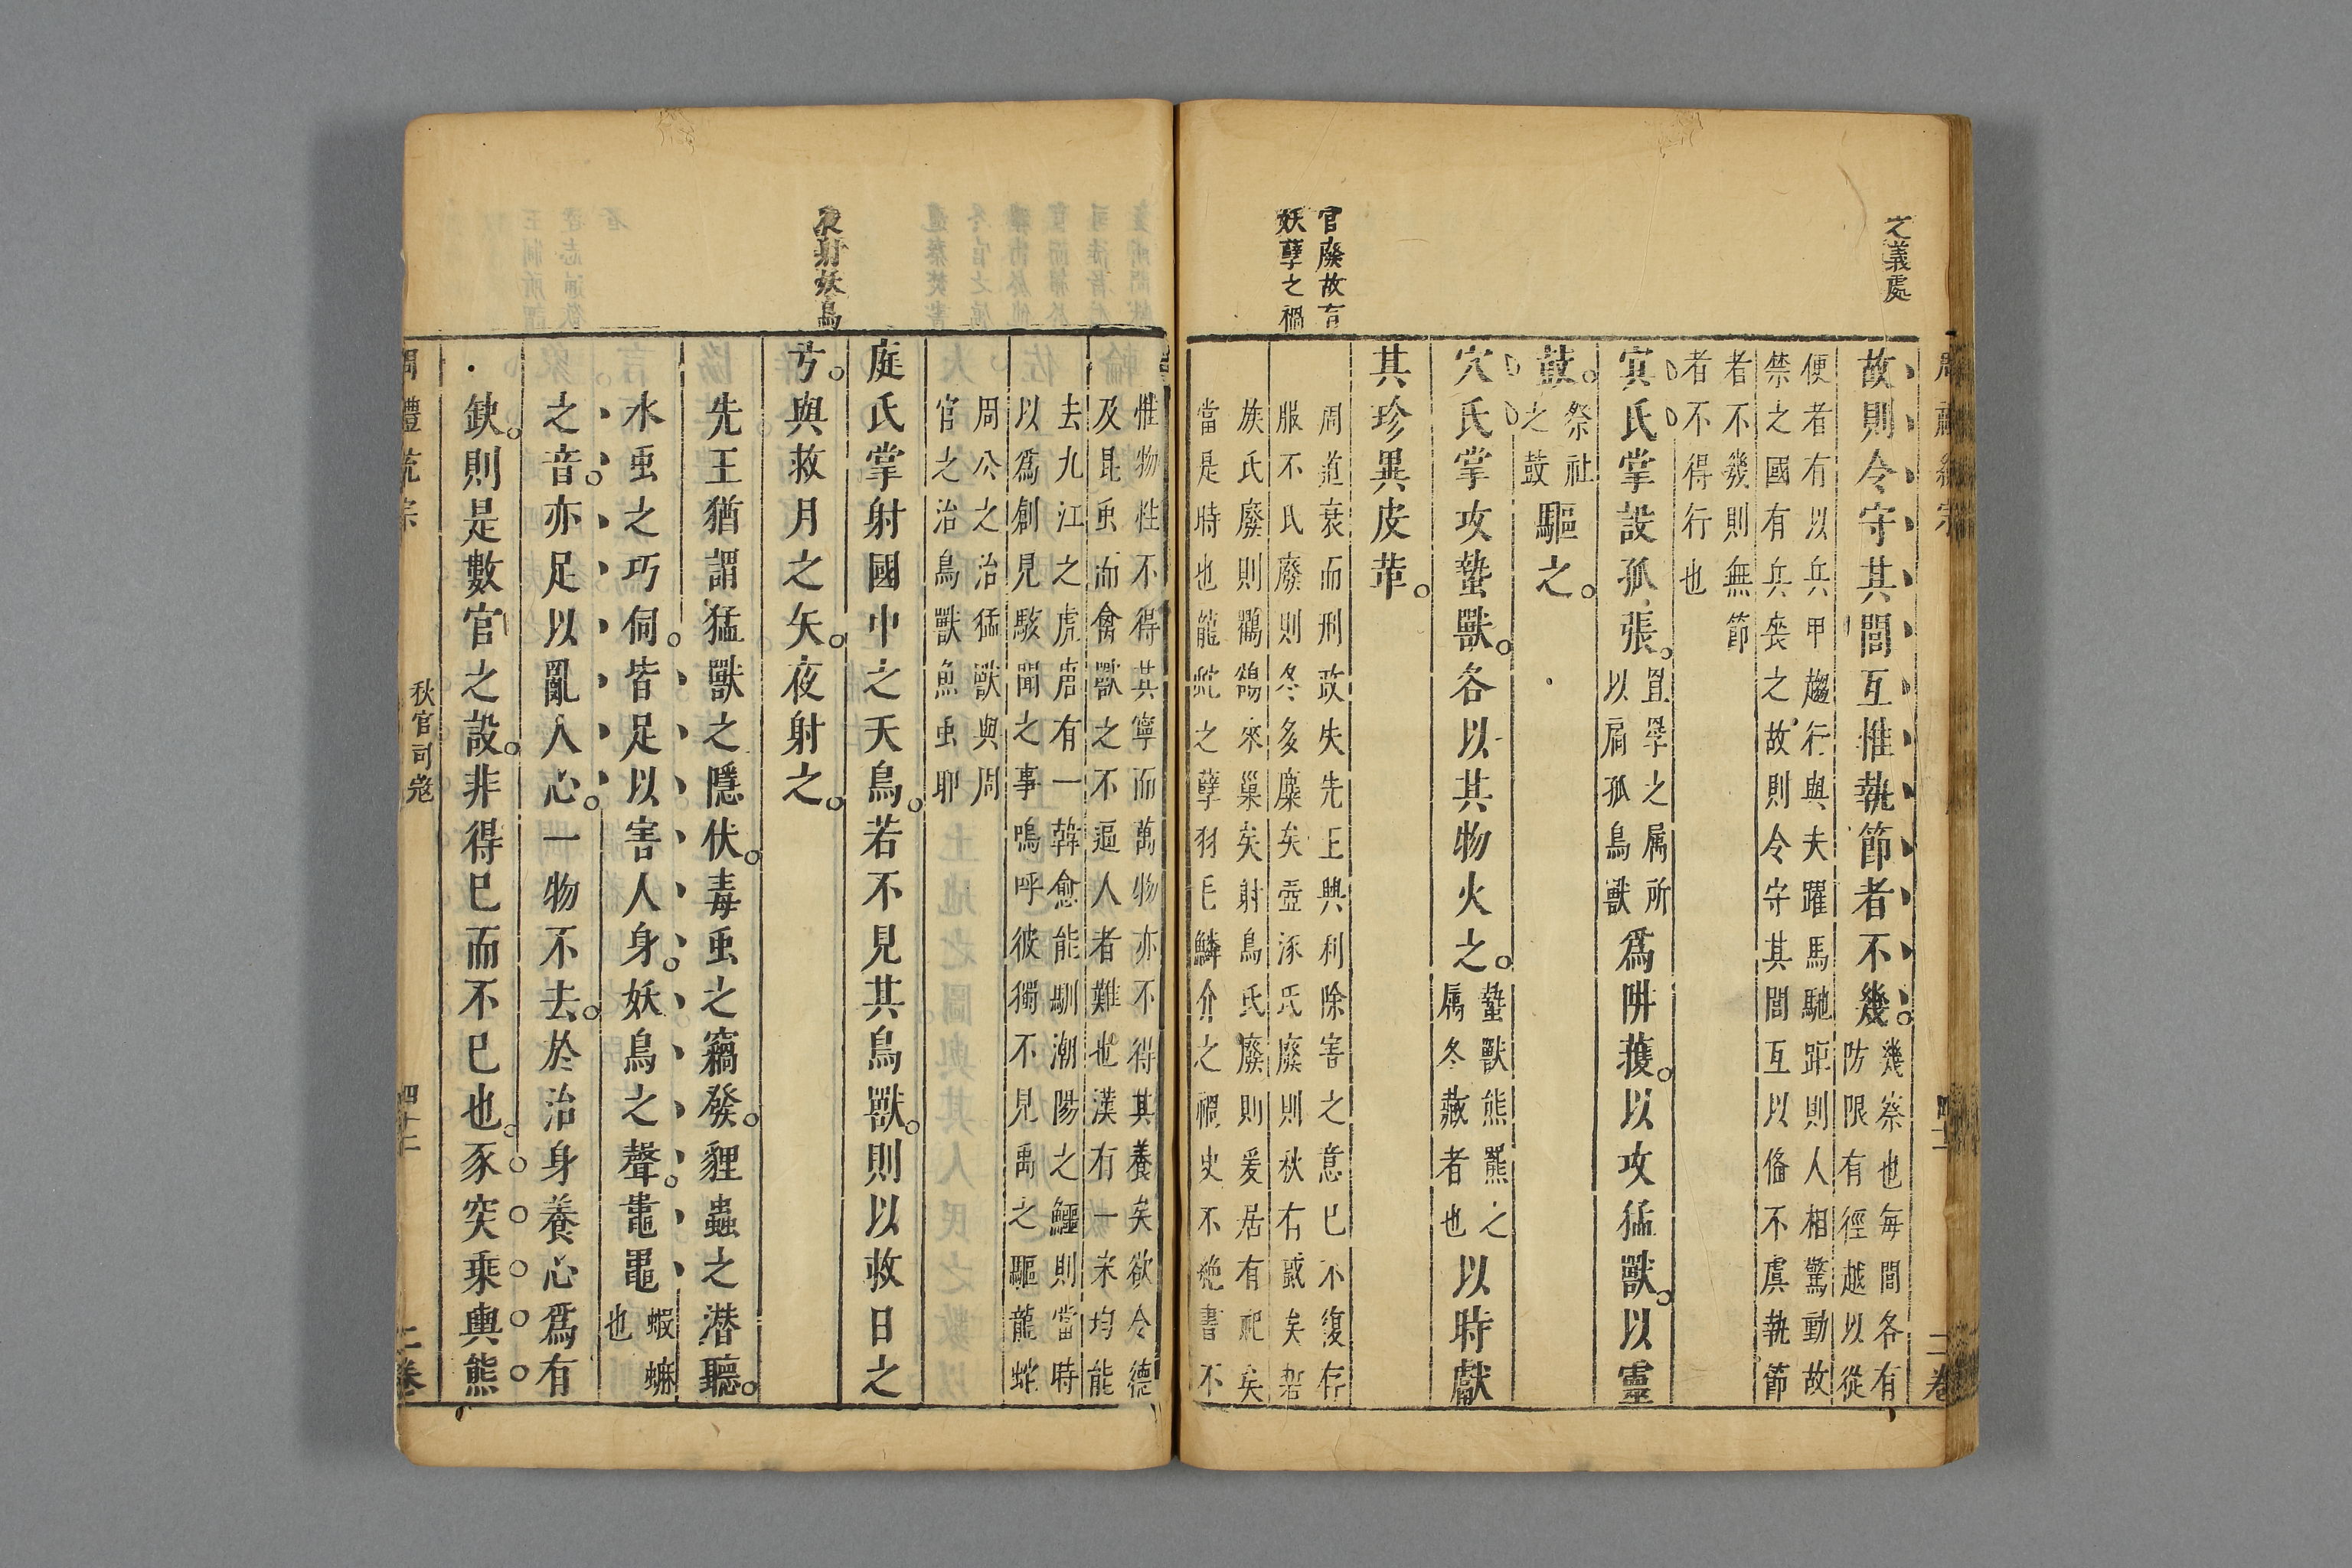 之義處
故則令守其閭互惟執節者不幾幾察也每閭各有
防限有徑越以從
便者有以兵甲趨行與夫躍馬馳距則人相驚動故
禁之國有兵喪之故則令守其閭互以俻不虞執節
者不幾則無節
者不得行也
㝠氏掌設孤張罝罦之属所
以扃孤鳥獸爲阱擭以攻猛獸以靈
鼓祭社
之鼓驅之
穴氏掌攻蟄獸各以其物火之蟄獸熊羆之
属冬藏者也以時獻
其珍異皮革
官廢故有
妖孽之禍
周道衰而刑政失先王興利除害之意已不復存
服不氏廢則冬多麋矣壺涿氏廢則秋有蜮矣硩
族氏廢則鸜鵒來巢矣射鳥氏廢則爰居有祀矣
當是時也龍蛇之孽羽毛鱗介之禍史不絶書不
惟物性不得其寧而萬物亦不得其養矣欲令德
及昆虫而禽獸之不逼人者難也漢有一宋均能
去九江之虎唐有一韓愈能馴潮陽之鱷則當時
以爲創見駭聞之事嗚呼彼獨不見禹之驅龍蛇
周公之治猛獸與周
官之治鳥獸魚虫耶
庭氏掌射國中之夭鳥若不見其鳥獸則以救日之
夜射妖鳥
弓與救月之矢夜射之
先王猶謂猛獸之隱伏毒虫之竊發貍蟲之潜聽
水虫之巧伺皆足以害人身妖鳥之聲鼃黽蝦蟆
也
之音亦足以亂人心一物不去於治身養心爲有
缺則是數官之設非得已而不已也豕突乘輿熊
周禮䟽宗
秋官司宼
四十二
二卷